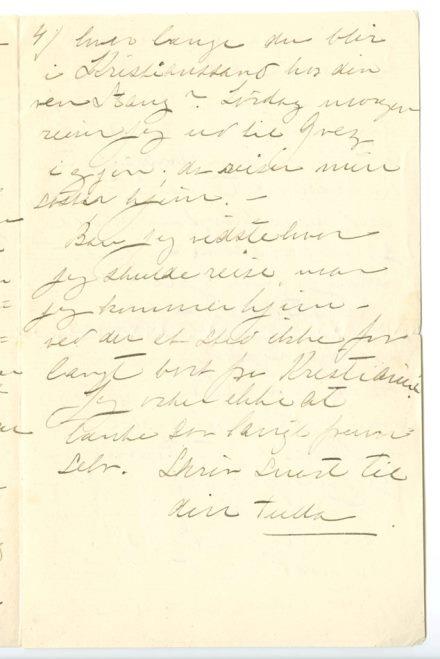 4) hvor længe du blir
i Kristianssand hos din
ven Bang? Lørdag morgen
reiser jeg ud til Grez
igjen, da reiser min
søster hjem. –
Bare jeg vidste hvor
jeg skulde reise, naar
jeg kommer hjem –
ved du et sted ikke for
langt bort fra Kristiania.
Jeg orker ikke at
tænke saa langt frem=
selv. Skriv snart til
din Tulla